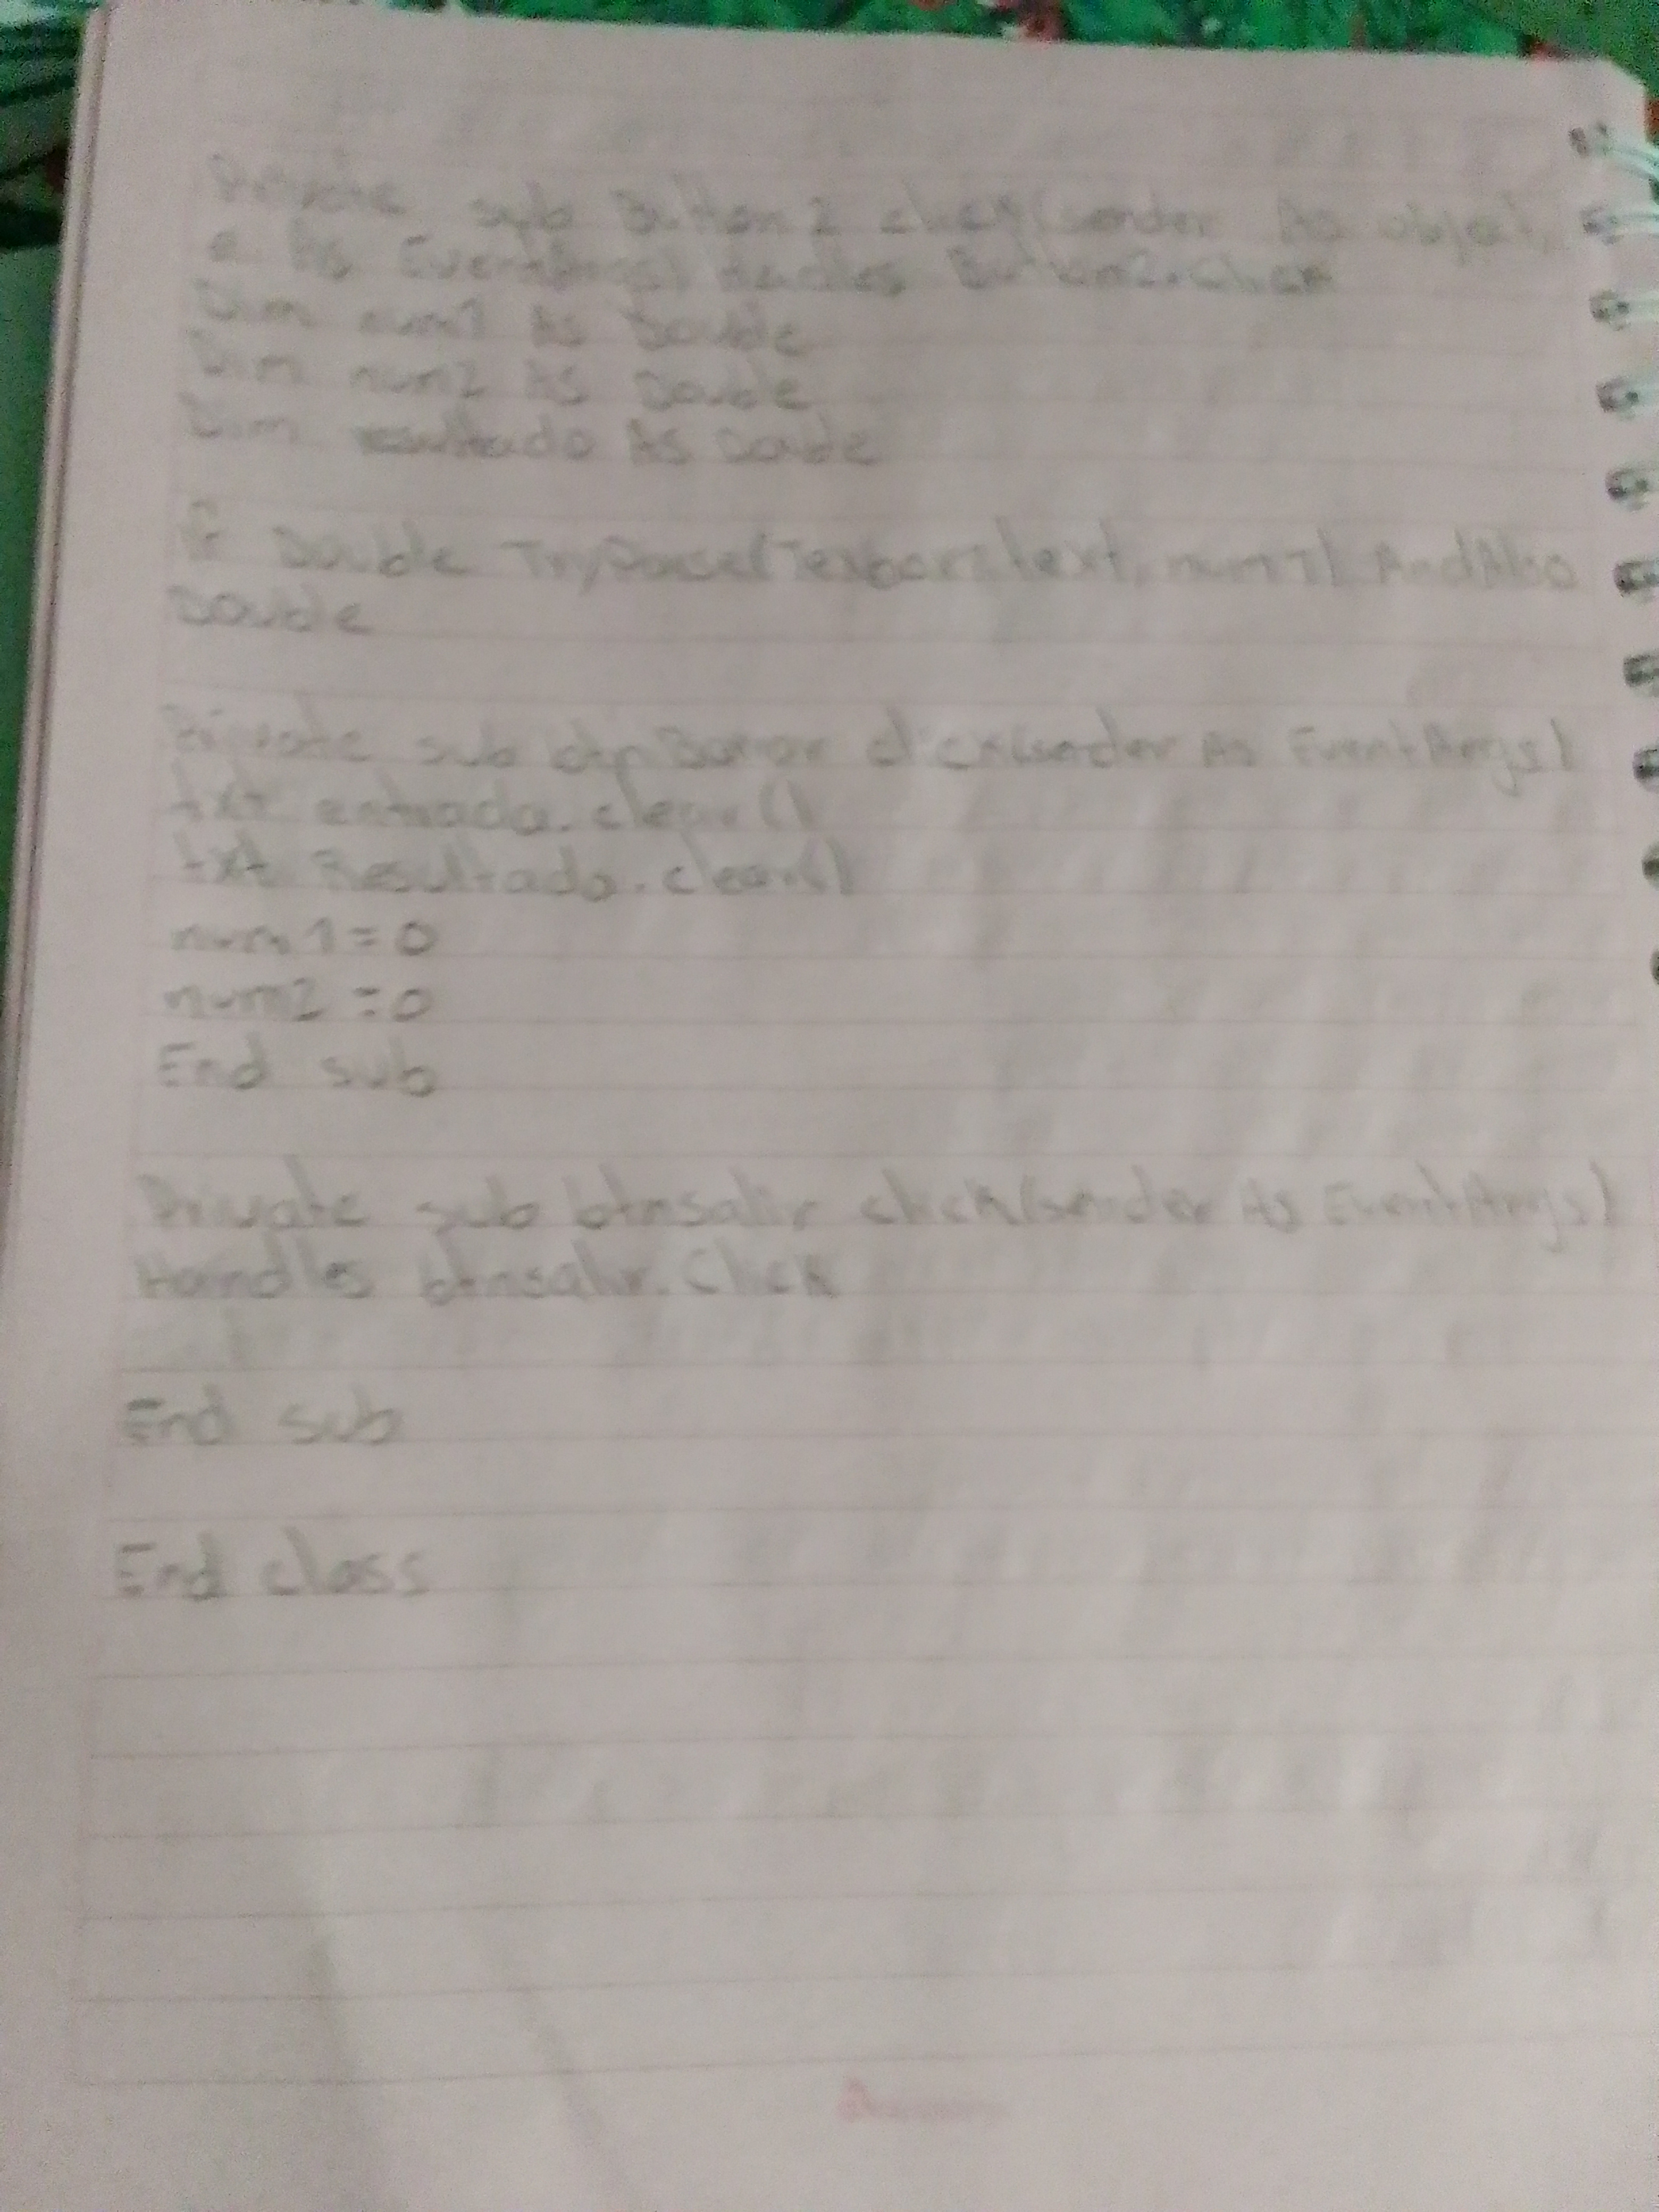 Private sub Button2 click(sender As object,
e As EventArgs) Handles Button2.Click
Dim num1 As Double
Dim num2 As Double
Dim resultado As Double
If Double TryParse(Texbox1.text, num1) AndAlso
Double
Private sub btnBorrar click(sender As EventArgs)
txt entrada.clear()
txt Resultado.clear()
num1=0
num2=0
End sub
Private sub btnsalir click(sender As EventArgs)
Handles btnsalir.Click
End sub
End class